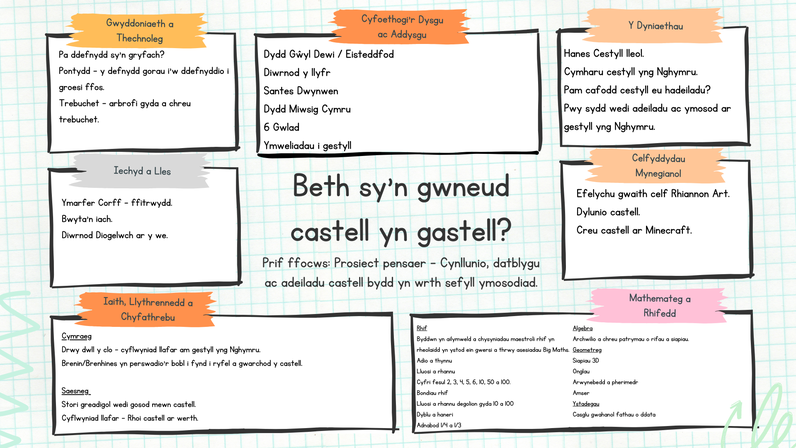 Gwyddoniaeth a
Thechnoleg
Pa ddefnydd sy'n gryfach?
Pontydd - y defnydd gorau i'w ddefnyddio i
groesi ffos.
Trebuchet - arbrofi gyda a chreu
trebuchet.
Cyfoethogi'r Dysgu
ac Addysgu
Dydd Gŵyl Dewi / Eisteddfod
Diwrnod y llyfr
Santes Dwynwen
Dydd Miwsig Cymru
6 Gwlad
Ymweliadau i gestyll
Y Dyniaethau
Hanes Cestyll lleol.
Cymharu cestyll yng Nghymru.
Pam cafodd cestyll eu hadeiladu?
Pwy sydd wedi adeiladu ac ymosod ar
gestyll yng Nghymru.
Iechyd a Lles
Ymarfer Corff - ffitrwydd.
Bwyta'n iach.
Diwrnod Diogelwch ar y we.
Beth sy'n gwneud
castell yn gastell?
Prif ffocws: Prosiect pensaer - Cynllunio, datblygu
ac adeiladu castell bydd yn wrth sefyll ymosodiad.
Celfyddydau
Mynegiannol
Efelychu gwaith celf Rhiannon Art.
Dylunio castell.
Creu castell ar Minecraft.
Iaith, Llythrennedd a
Chyfathrebu
Cymraeg
Drwy dwll y clo - cyflwyniad llafar am gestyll yng Nghymru.
Brenin/Brenhines yn perswadio'r bobl i fynd i ryfel a gwarchod y castell.
Saesneg
Stori greadigol wedi gosod mewn castell.
Cyflwyniad llafar - Rhoi castell ar werth.
Mathemateg a
Rhifedd
Rhif
Byddwn yn ailymweld a chysyniadau maestroli rhif yn
rheolaidd yn ystod ein gwersi a thrwy asesiadau Big Maths.
Adio a thynnu
Lluosi a rhannu
Cyfri fesul 2, 3, 4, 5, 6, 10, 50 a 100.
Bondiau rhif
Lluosi a rhannu degolion gyda 10 a 100
Dyblu a haneri
Adnabod 1/4 a 1/3
Algebra
Archwilio a chreu patrymau o rifau a siapiau.
Geometreg
Siapiau 3D
Onglau
Arwynebedd a pherimedr
Amser
Ystadegau
Casglu gwahanol fathau o ddata